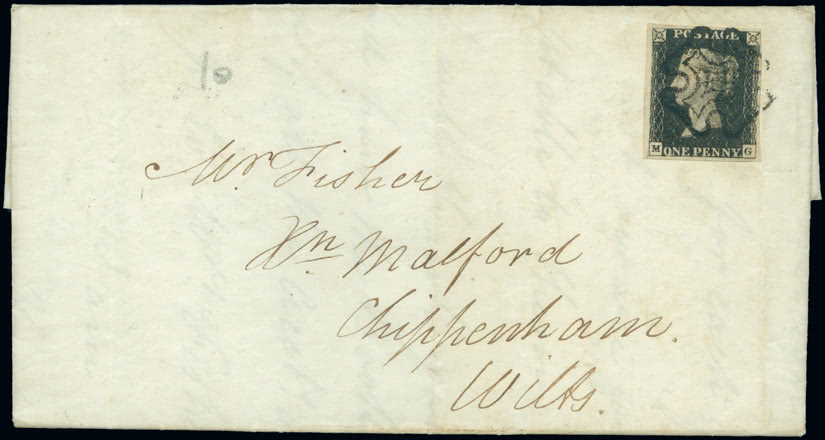 POSTAGE
ONE PENNY.
M G
Mr Fisher
Xn Malford
Chippenham.
Wilts.